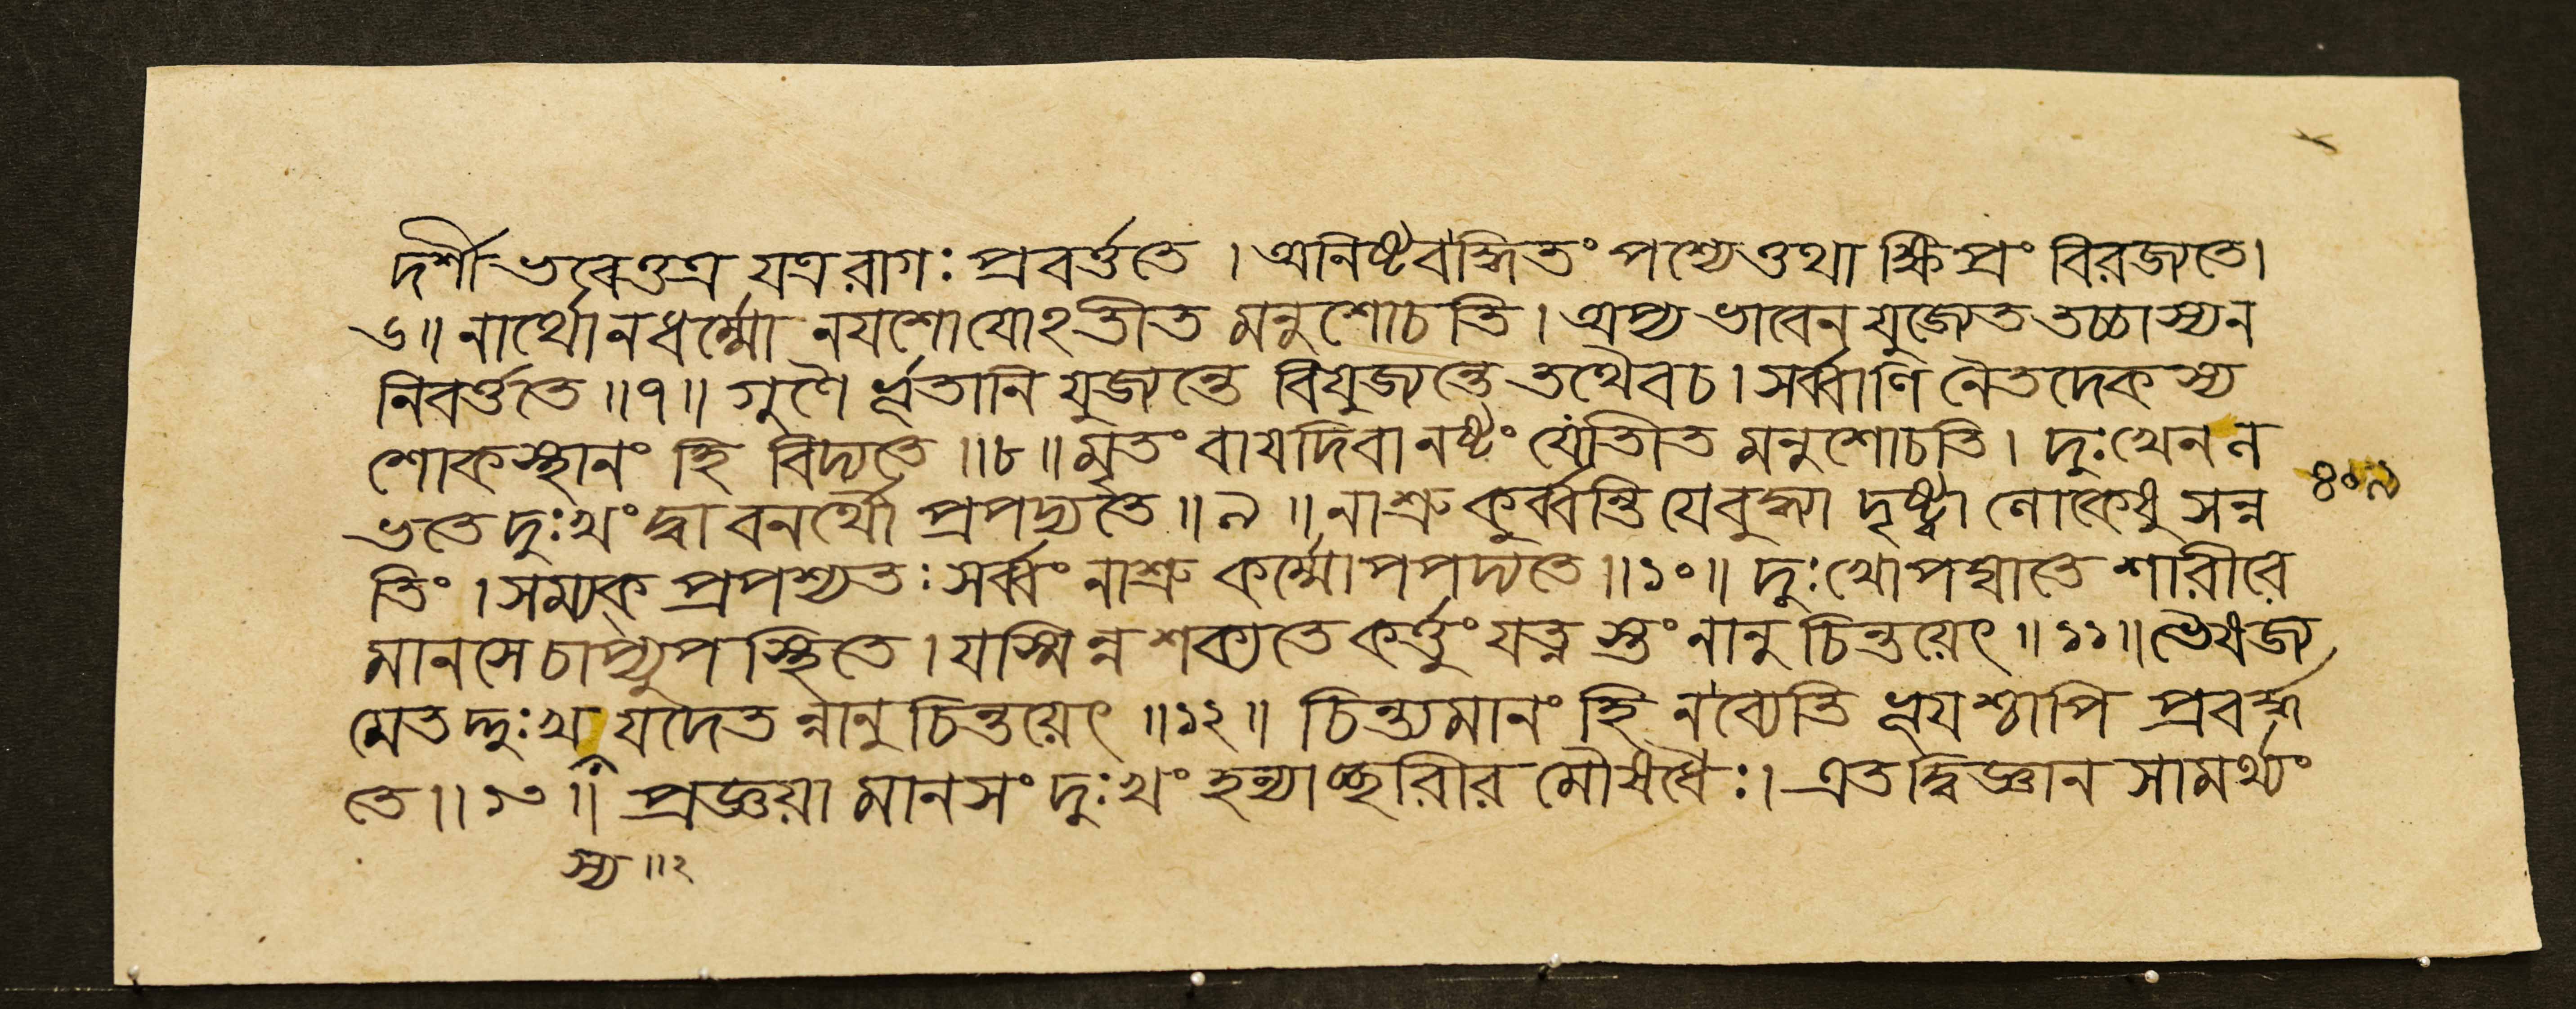 দর্শী ভবেত্তত্র যত্র রাগঃ প্রবর্ত্ততে । অনিষ্টবর্দ্ধিতং পশ্যেত্তথা ক্ষিপ্রং বিরজ্যতে।
৬॥ নার্থো ন ধর্ম্মো ন যশো যোঽতীত মনুশোচতি । অপ্য ভাবেন যুজ্যেত তচ্চাস্য ন
নিবর্ত্ততে ॥৭॥ গুণৈ র্ভূতানি যুজ্যন্তে বিযুজ্যন্তে তথৈব চ । সর্ব্বাণি নৈতদেকস্য
শোকস্থানং হি বিদ্যতে ॥৮॥ মৃতং বা যদি বা নষ্টং যোতীত মনুশোচতি । দুঃখেন ল
ভতে দুঃখং দ্বা বনর্থৌ প্রপদ্যতে ॥৯॥ নাশ্রু কুর্ব্বন্তি যে বুদ্ধ্যা দৃষ্ট্বা লোকেষু সন্ন ৪০৯
তিং । সম্যক্ প্রপশ্যতঃ সর্ব্বং নাশ্রু কর্ম্মোপপদ্যতে ॥১০॥ দুঃখোপঘাতে শারীরে
মানসে চাপ্যুপস্থিতে । যস্মিন্ন শক্যতে কর্ত্তুং যত্ন স্তং নানু চিন্তয়েৎ ॥১১॥ ভৈষজ্য
মেত দ্দুঃখ যদেত ন্নানু চিন্তয়েৎ ॥১২॥ চিন্ত্যমানং হি ন ব্যেতি ভূয়শ্চাপি প্রবর্দ্ধ
তে ॥১৩॥ প্রজ্ঞয়া মানসং দুঃখং হন্যাচ্ছরীর মৌষধৈঃ। এতদ্বিজ্ঞান সামর্থ্যং
স্য ॥২